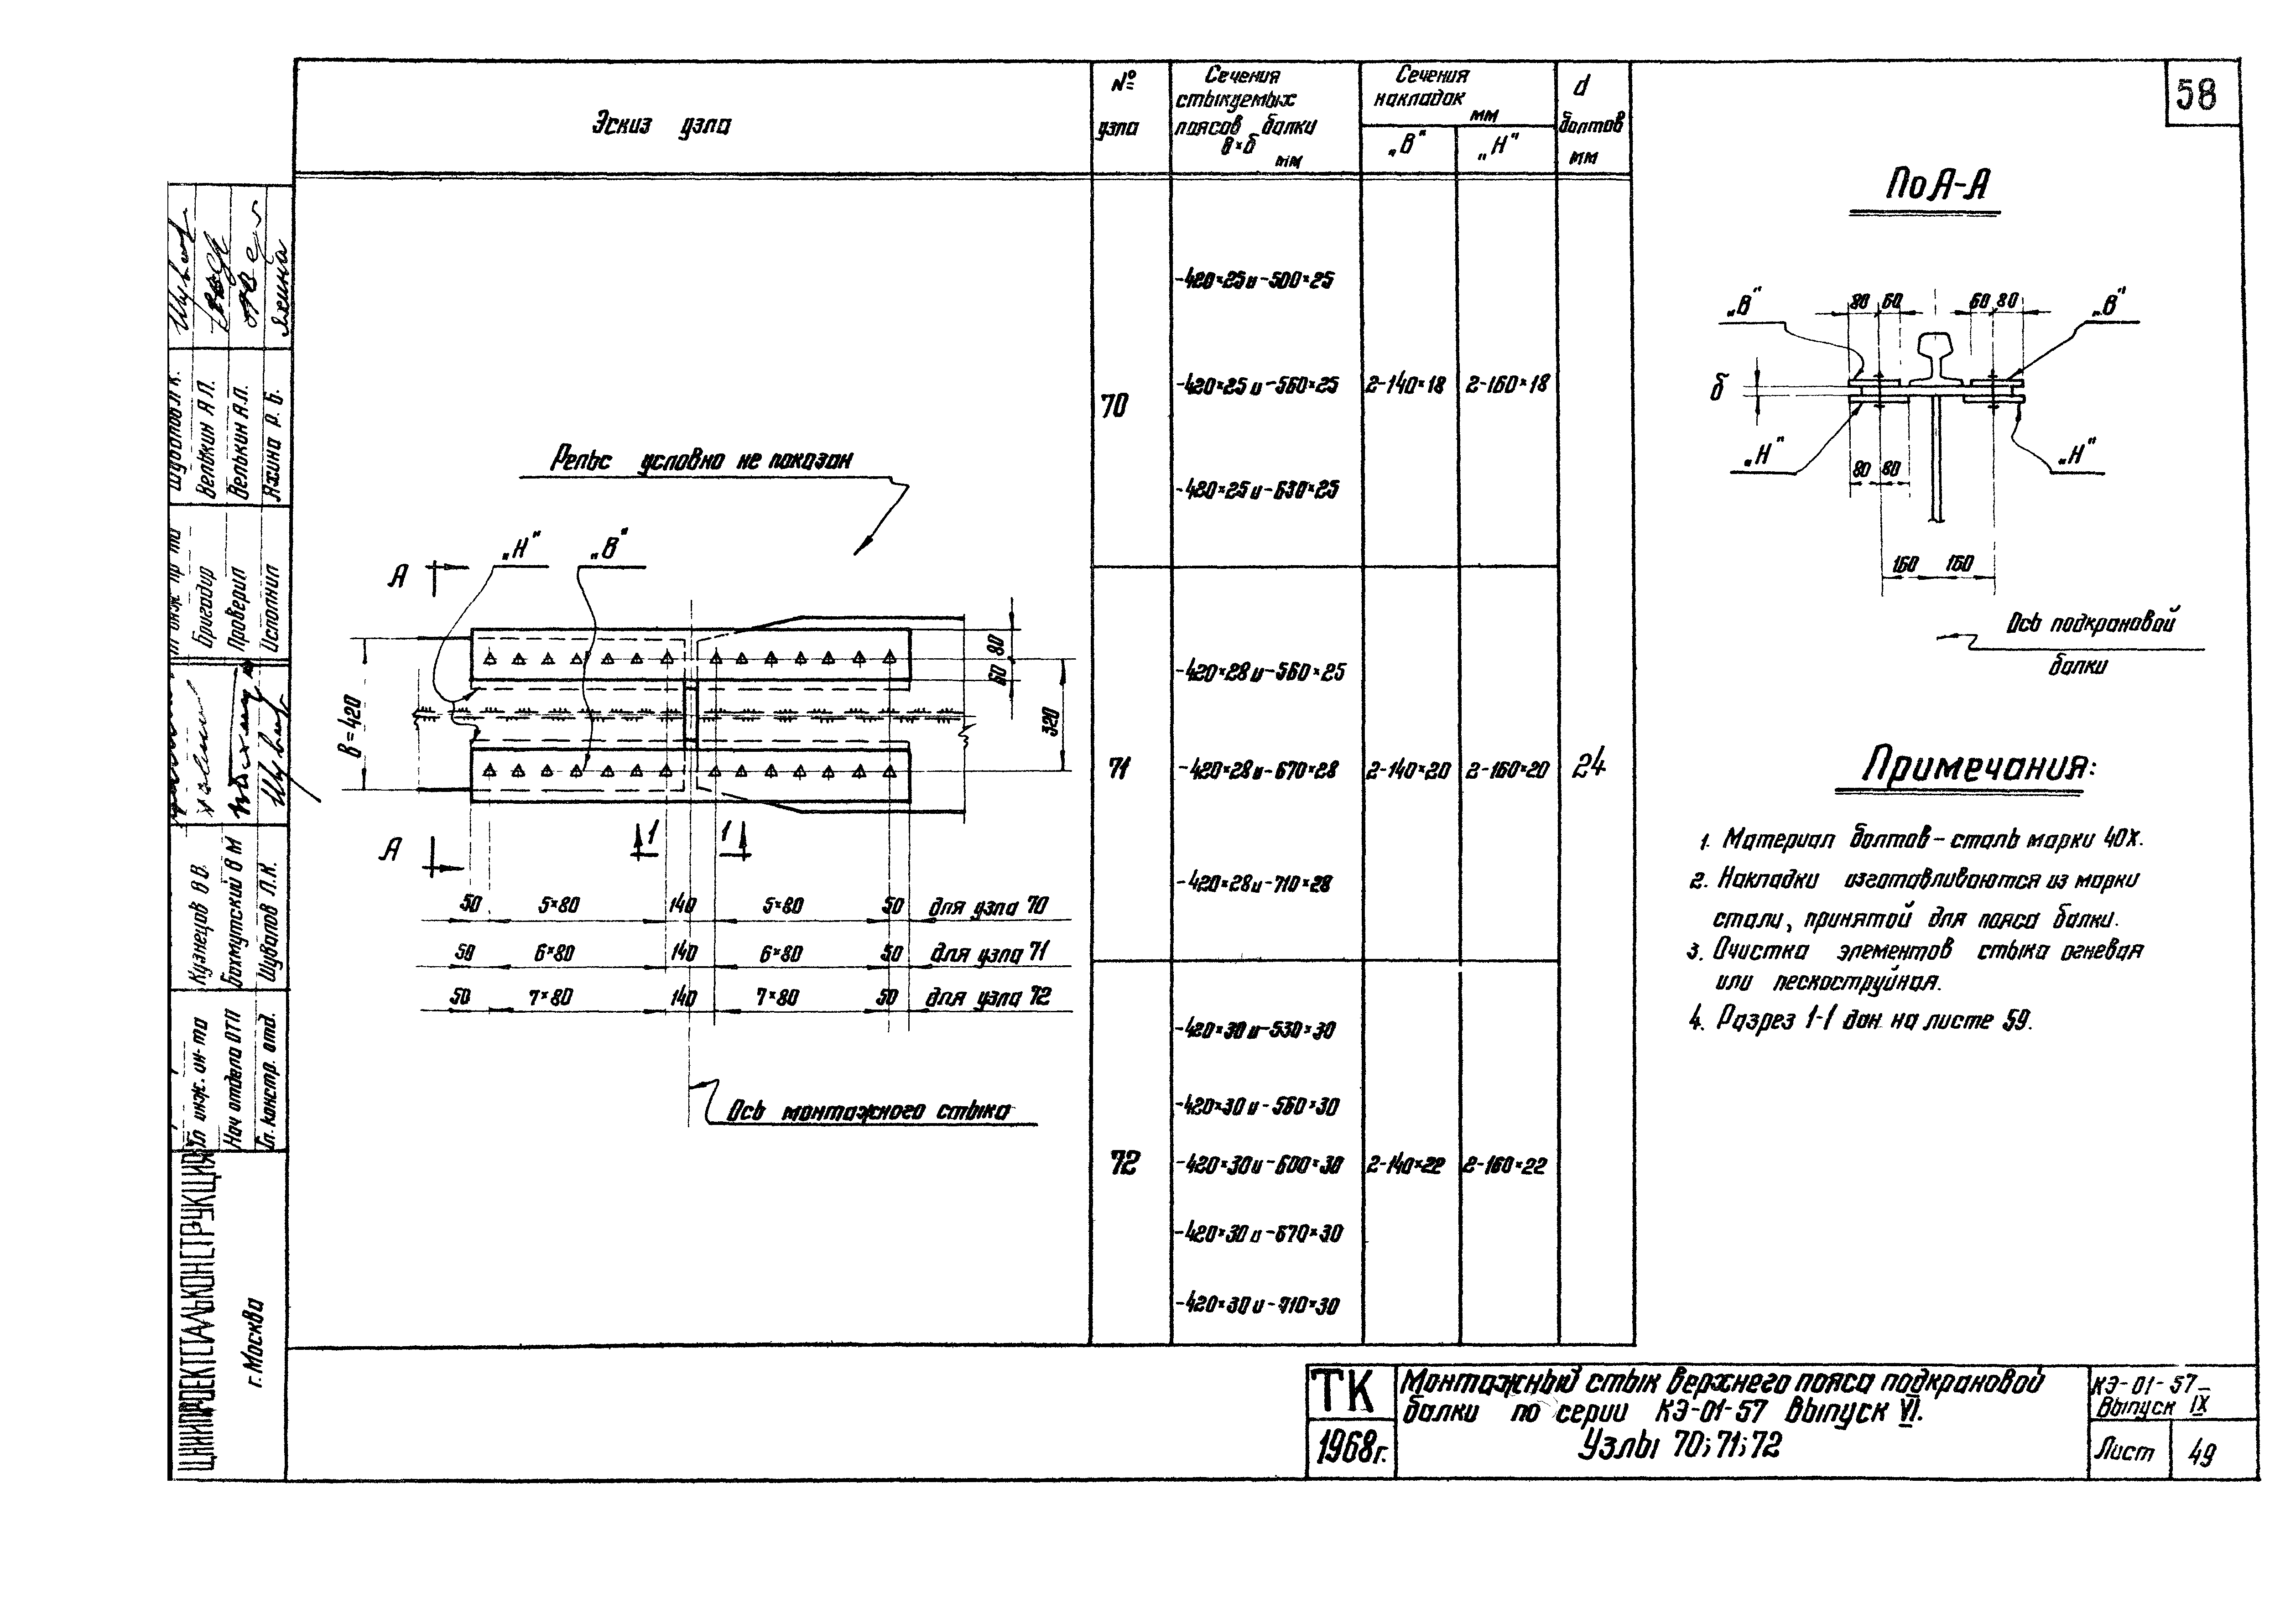 58
Эскиз узла
№ узла
Сечения
стыкуемых
поясов балки
в×δ мм
Сечения
накладок мм
„В" „Н"
d
болтов
мм
70
-420×25 и -500×25
-420×25 и -560×25
2-140×18
2-160×18
-420×25 и -630×25
71
-420×28 и -560×25
-420×28 и -670×28
2-140×20
2-160×20
24
-420×28 и -710×28
72
-420×30 и -530×30
-420×30 и -560×30
-420×30 и -600×30
2-140×22
2-160×22
-420×30 и -670×30
-420×30 и -710×30
Рельс условно не показан
„Н" „В"
А
В=420
80
60
320
А
1 1
50 5×80 140 5×80 50 для узла 70
50 6×80 140 6×80 50 для узла 71
50 7×80 140 7×80 50 для узла 72
Ось монтажного стыка
По А-А
„В" 80 60 60 80 „В"
δ
„Н" 80 80 „Н"
160 160
Ось подкрановой
балки
Примечания:
1. Материал болтов – сталь марки 40Х.
2. Накладки изготавливаются из марки
стали, принятой для пояса балки.
3. Очистка элементов стыка огневая
или пескоструйная.
4. Разрез 1-1 дан на листе 59.
ТК
1968г.
Монтажный стык верхнего пояса подкрановой
балки по серии КЭ-01-57 Выпуск VI.
Узлы 70; 71; 72
КЭ-01-57
Выпуск IX
Лист 49
ЦНИИПРОЕКТСТАЛЬКОНСТРУКЦИЯ
г. Москва
Гл инж. ин-та
Кузнецов В В.
Нач отдела ОТП
Бахмутский В М
Гл. констр. отд.
Шувалов Л.К.
Шувалов Л К.
Бригадир
Велькин А П.
Проверил
Велькин А.П.
Исполнил
Яхина Р. Б.
Яхина